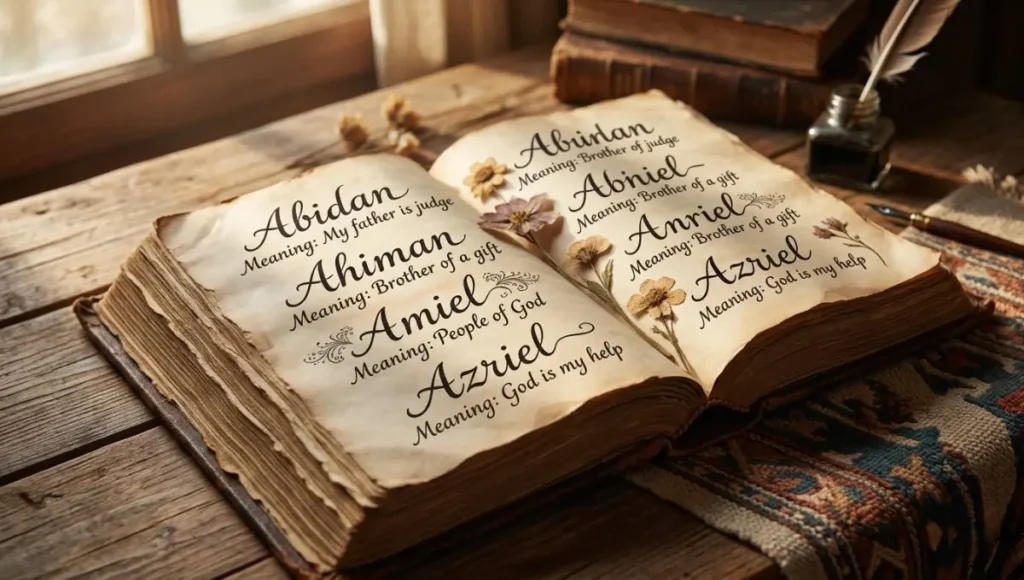 Abidan
Meaning: My father is judge
Ahiman
Meaning: Brother of a gift
Amiel
Meaning: People of God
Azriel
Meaning: God is my help
Abiridan
Meaning: Brother of judge
Abniel
Meaning: Brother of a gift
Anriel
Meaning: Brother of a gift
Azriel
Meaning: God is my help